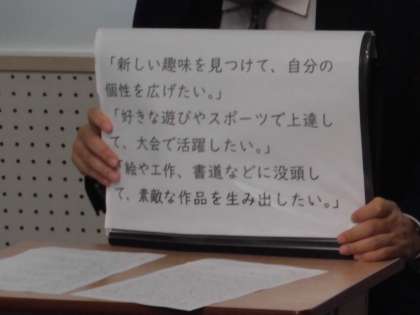 「新しい趣味を見つけて、自分の
個性を広げたい。」
「好きな遊びやスポーツで上達し
て、大会で活躍したい。」
「絵や工作、書道などに没頭し
て、素敵な作品を生み出したい。」